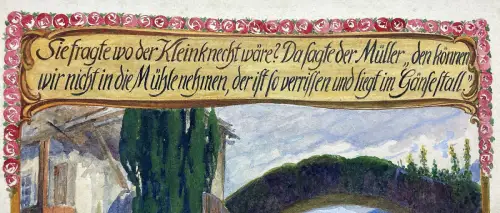 Sie fragte wo der Kleinknecht wäre? Da sagte der Müller „den können
wir nicht in die Mühle nehmen, der ist so verrissen und liegt im Gänsestall."